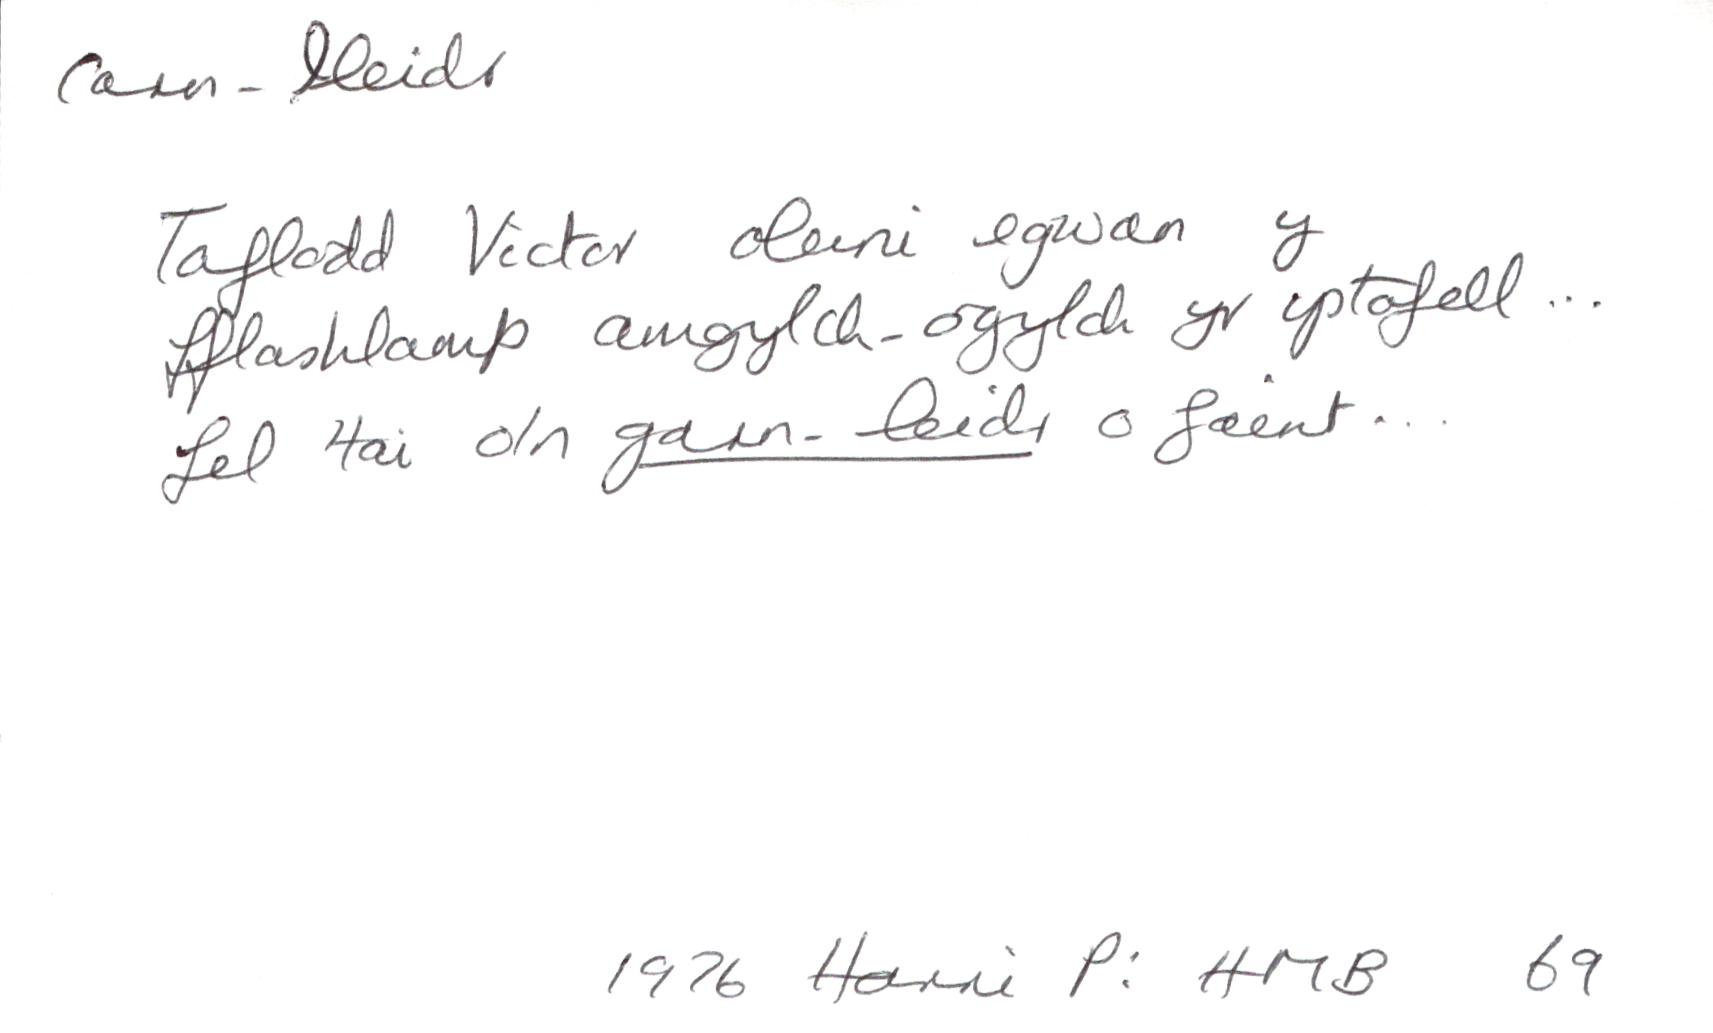 carn-lleidr
Taflodd Victor oleuni egwan y
fflashlamp amgylch-ogylch yr ystafell ...
fel tai o/n garn-leidr o faint ...
1976 Harri P: HMB 69